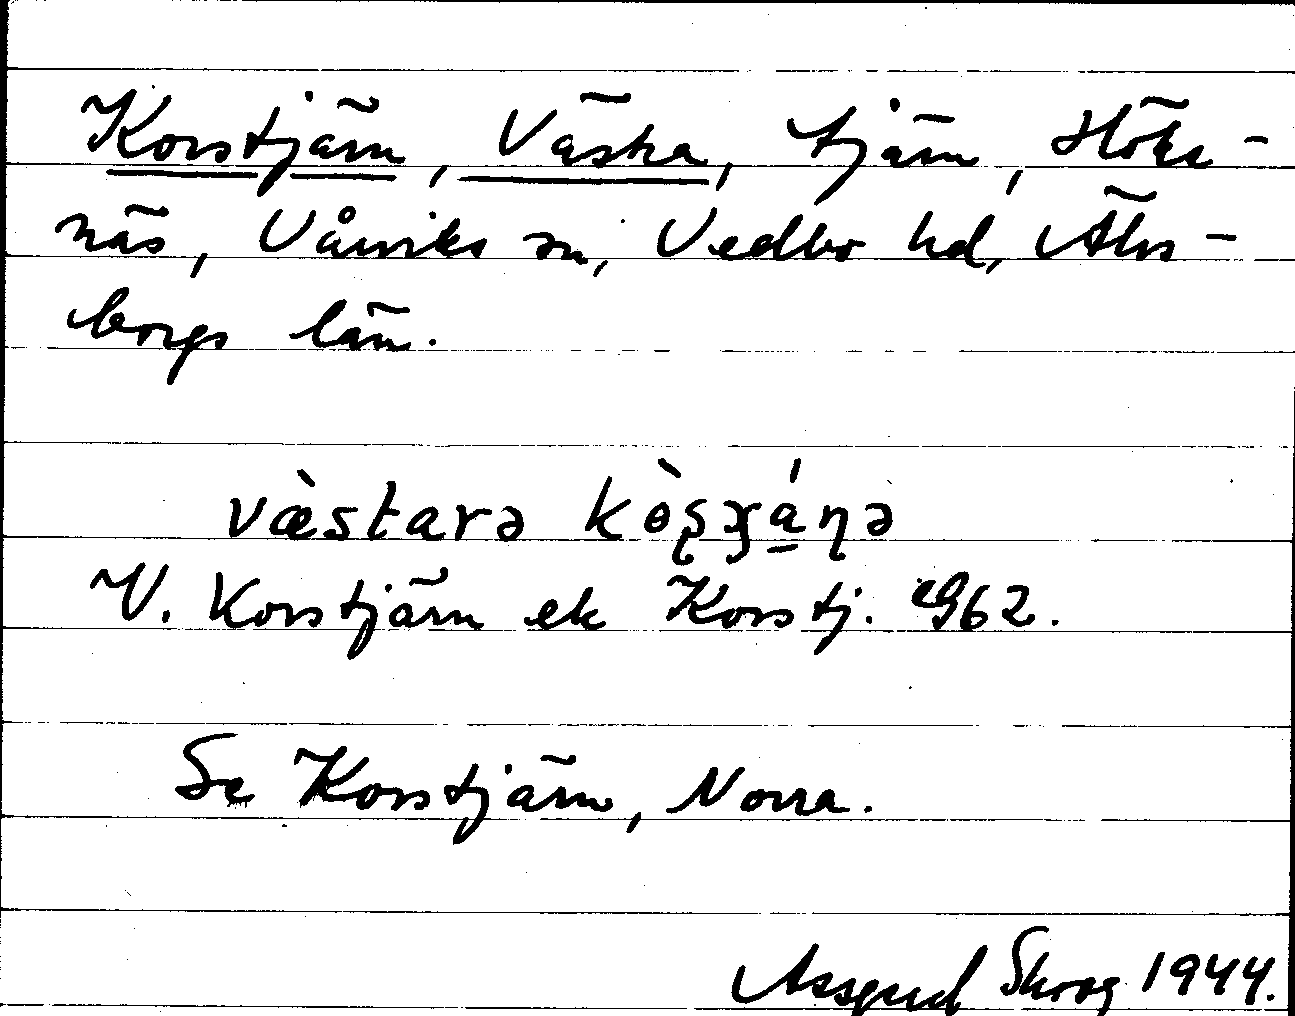 Korstjärn, Västra, tjärn, Höks-
näs, Vårviks sn, Vedbo hd, Älvs-
borgs län.
væ̀starə kɵ̀ʂɣá̱ɳə
V. Korstjärn ek Korstj. G62.
Se Korstjärn, Norra.
Assgerd Skrog 1944.